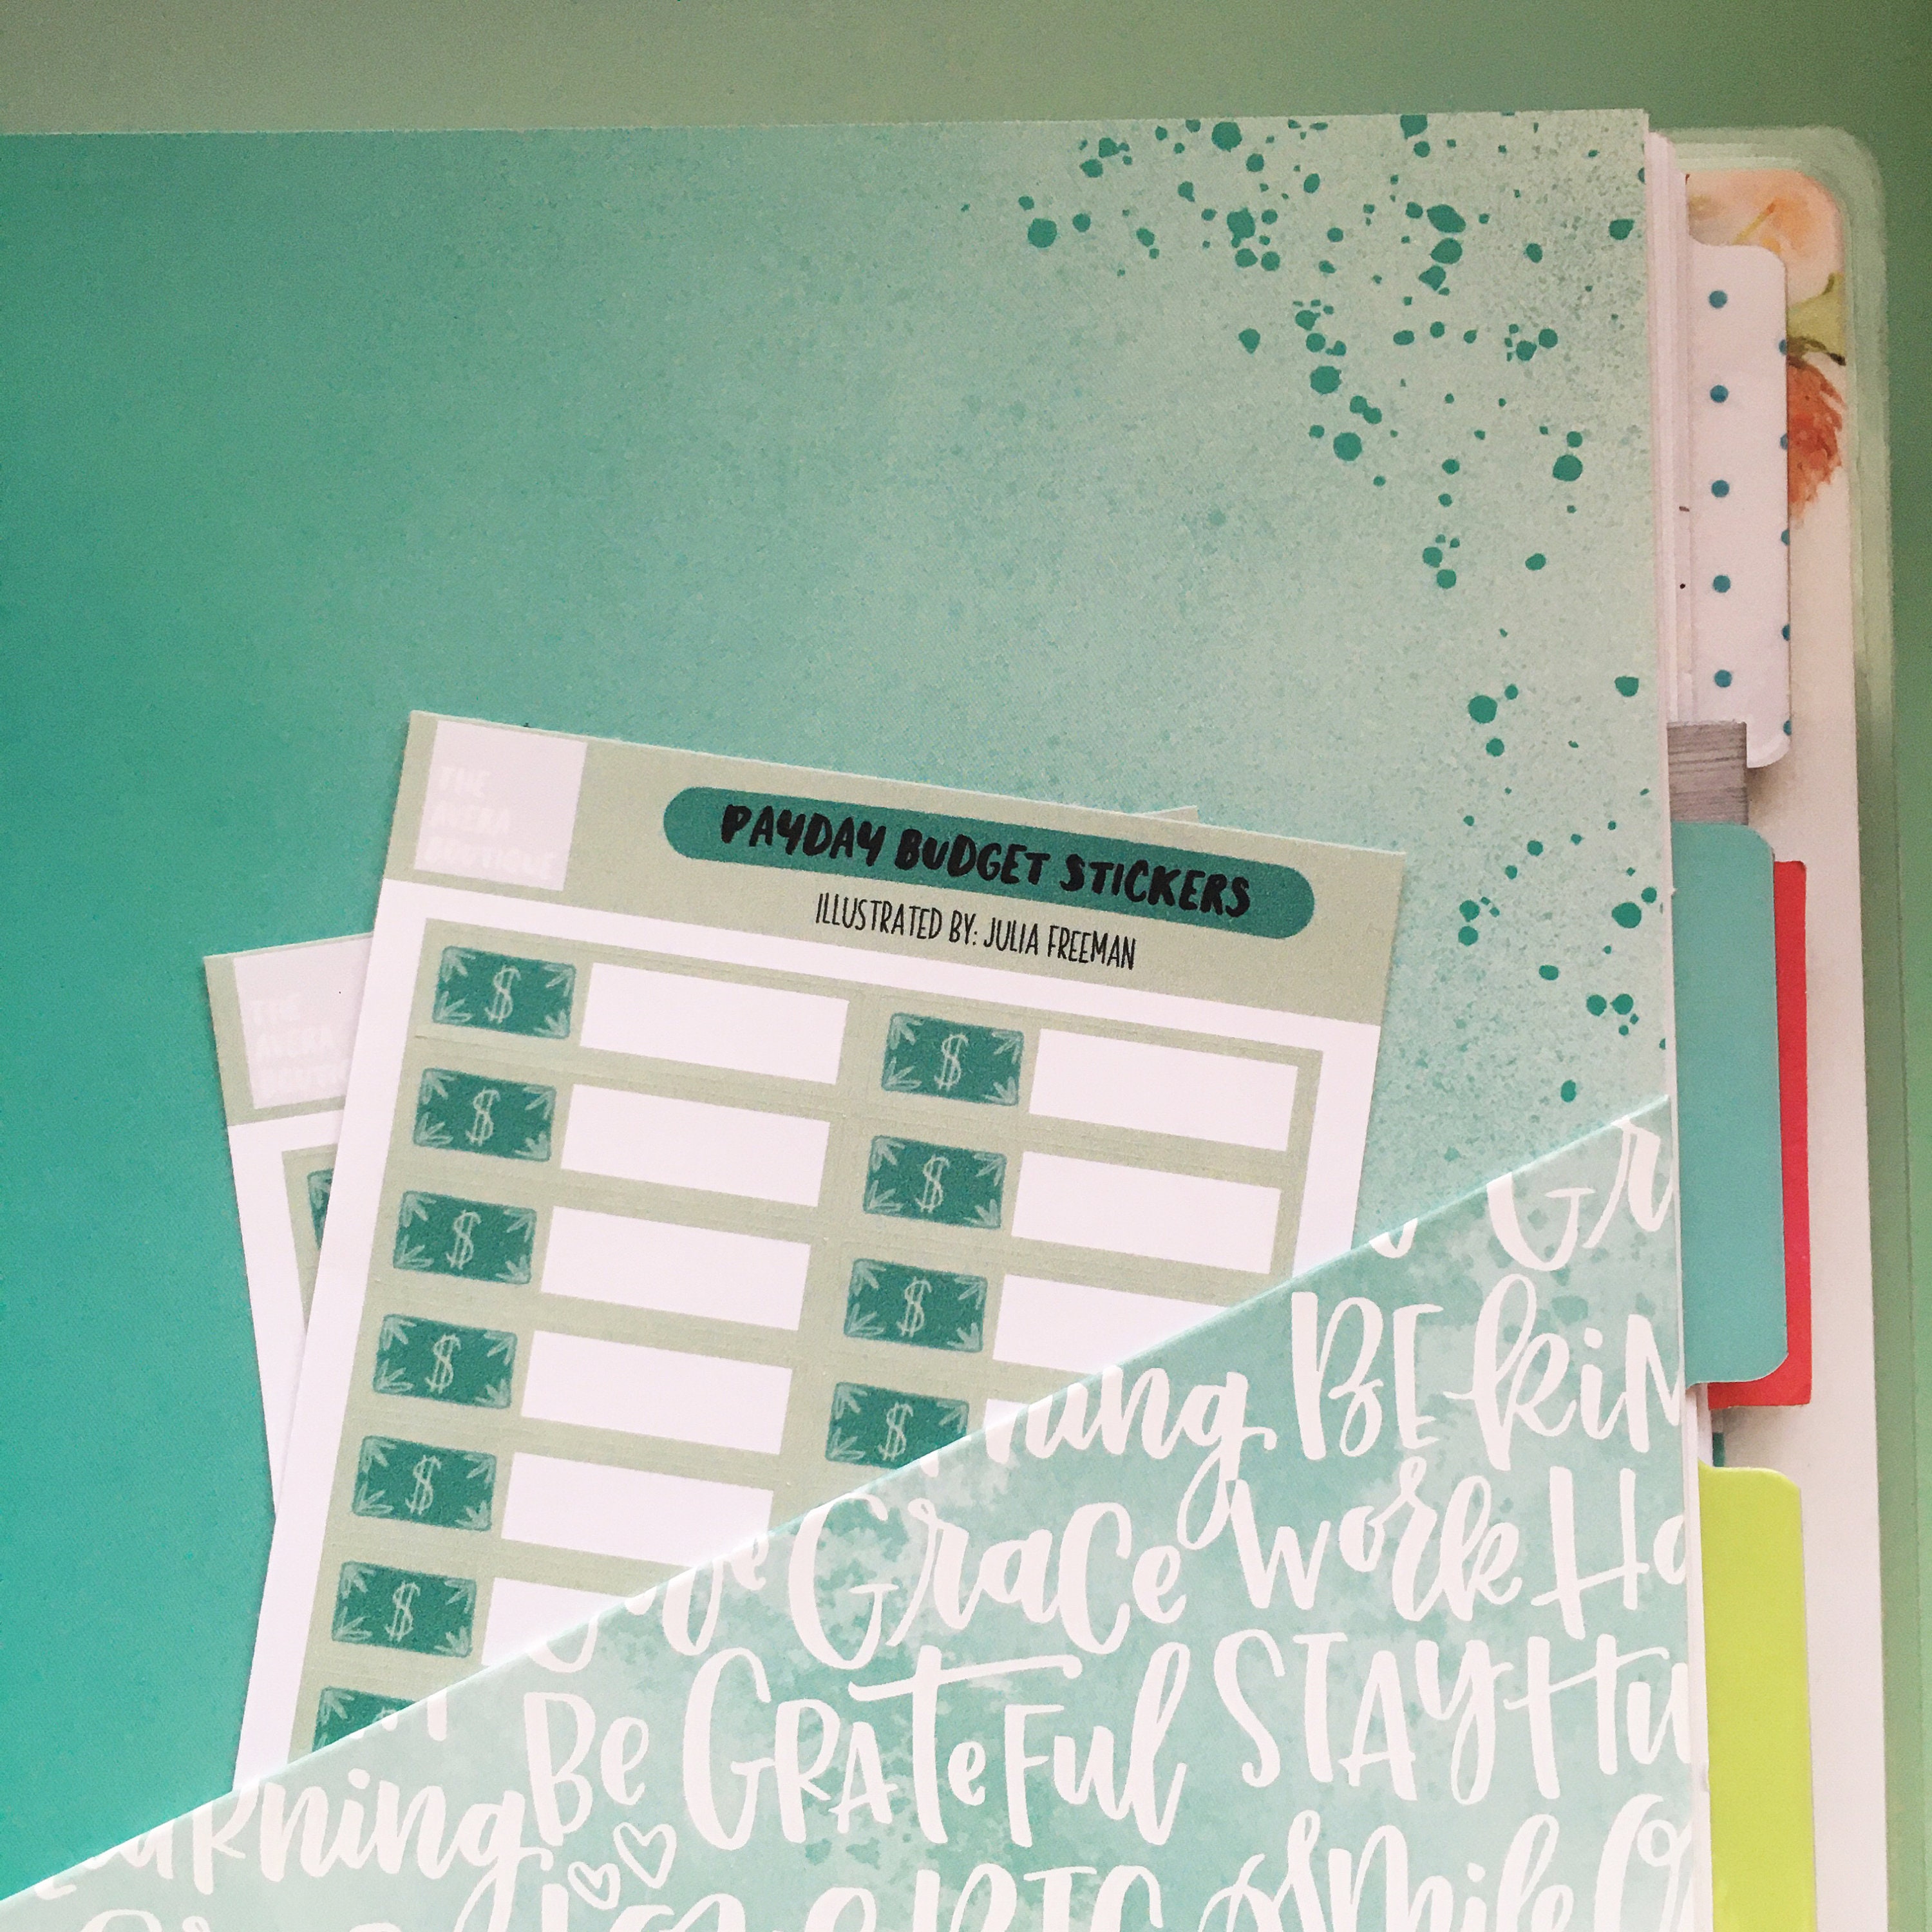 THE
AVERA
BOUTIQUE
PAYDAY BUDGET STICKERS
ILLUSTRATED BY: JULIA FREEMAN
THE
$
$
$
$
$
$
$
$
$
$
Gr
BE KiN
Grace Work Ha
Be GRAteFul STAY Hu
Smile